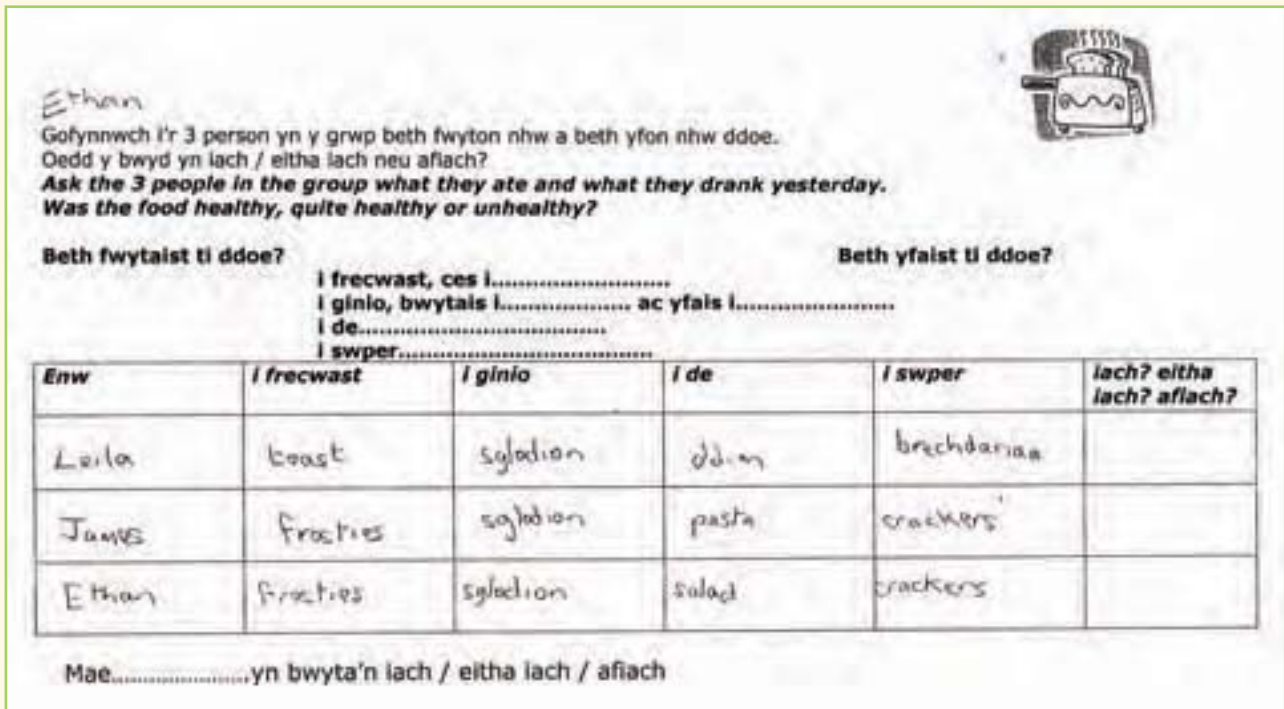 Ethan
Gofynnwch i'r 3 person yn y grwp beth fwyton nhw a beth yfon nhw ddoe.
Oedd y bwyd yn iach / eitha iach neu afiach?
Ask the 3 people in the group what they ate and what they drank yesterday.
Was the food healthy, quite healthy or unhealthy?
Beth fwytaist ti ddoe? Beth yfaist ti ddoe?
i frecwast, ces i...........................
i ginio, bwytais i................... ac yfais i.......................
i de.....................................
i swper......................................
Enw i frecwast i ginio i de i swper iach? eitha iach? afiach?
Leila toast sglodion ddim brechdanau
James frosties sglodion pasta crackers
Ethan frosties sglodion salad crackers
Mae.......................yn bwyta'n iach / eitha iach / afiach